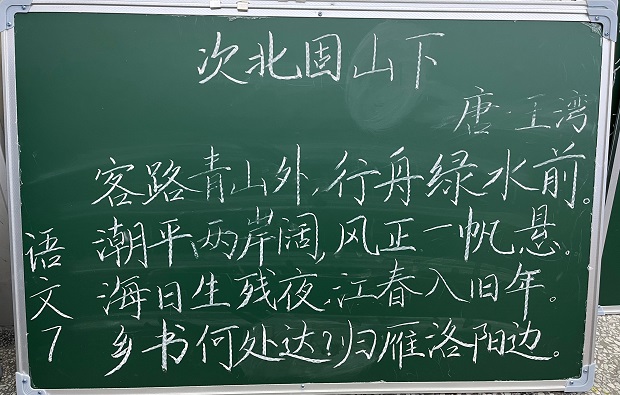 次北固山下
唐·王湾
客路青山外,行舟绿水前。
潮平两岸阔,风正一帆悬。
海日生残夜,江春入旧年。
乡书何处达?归雁洛阳边。
语文7